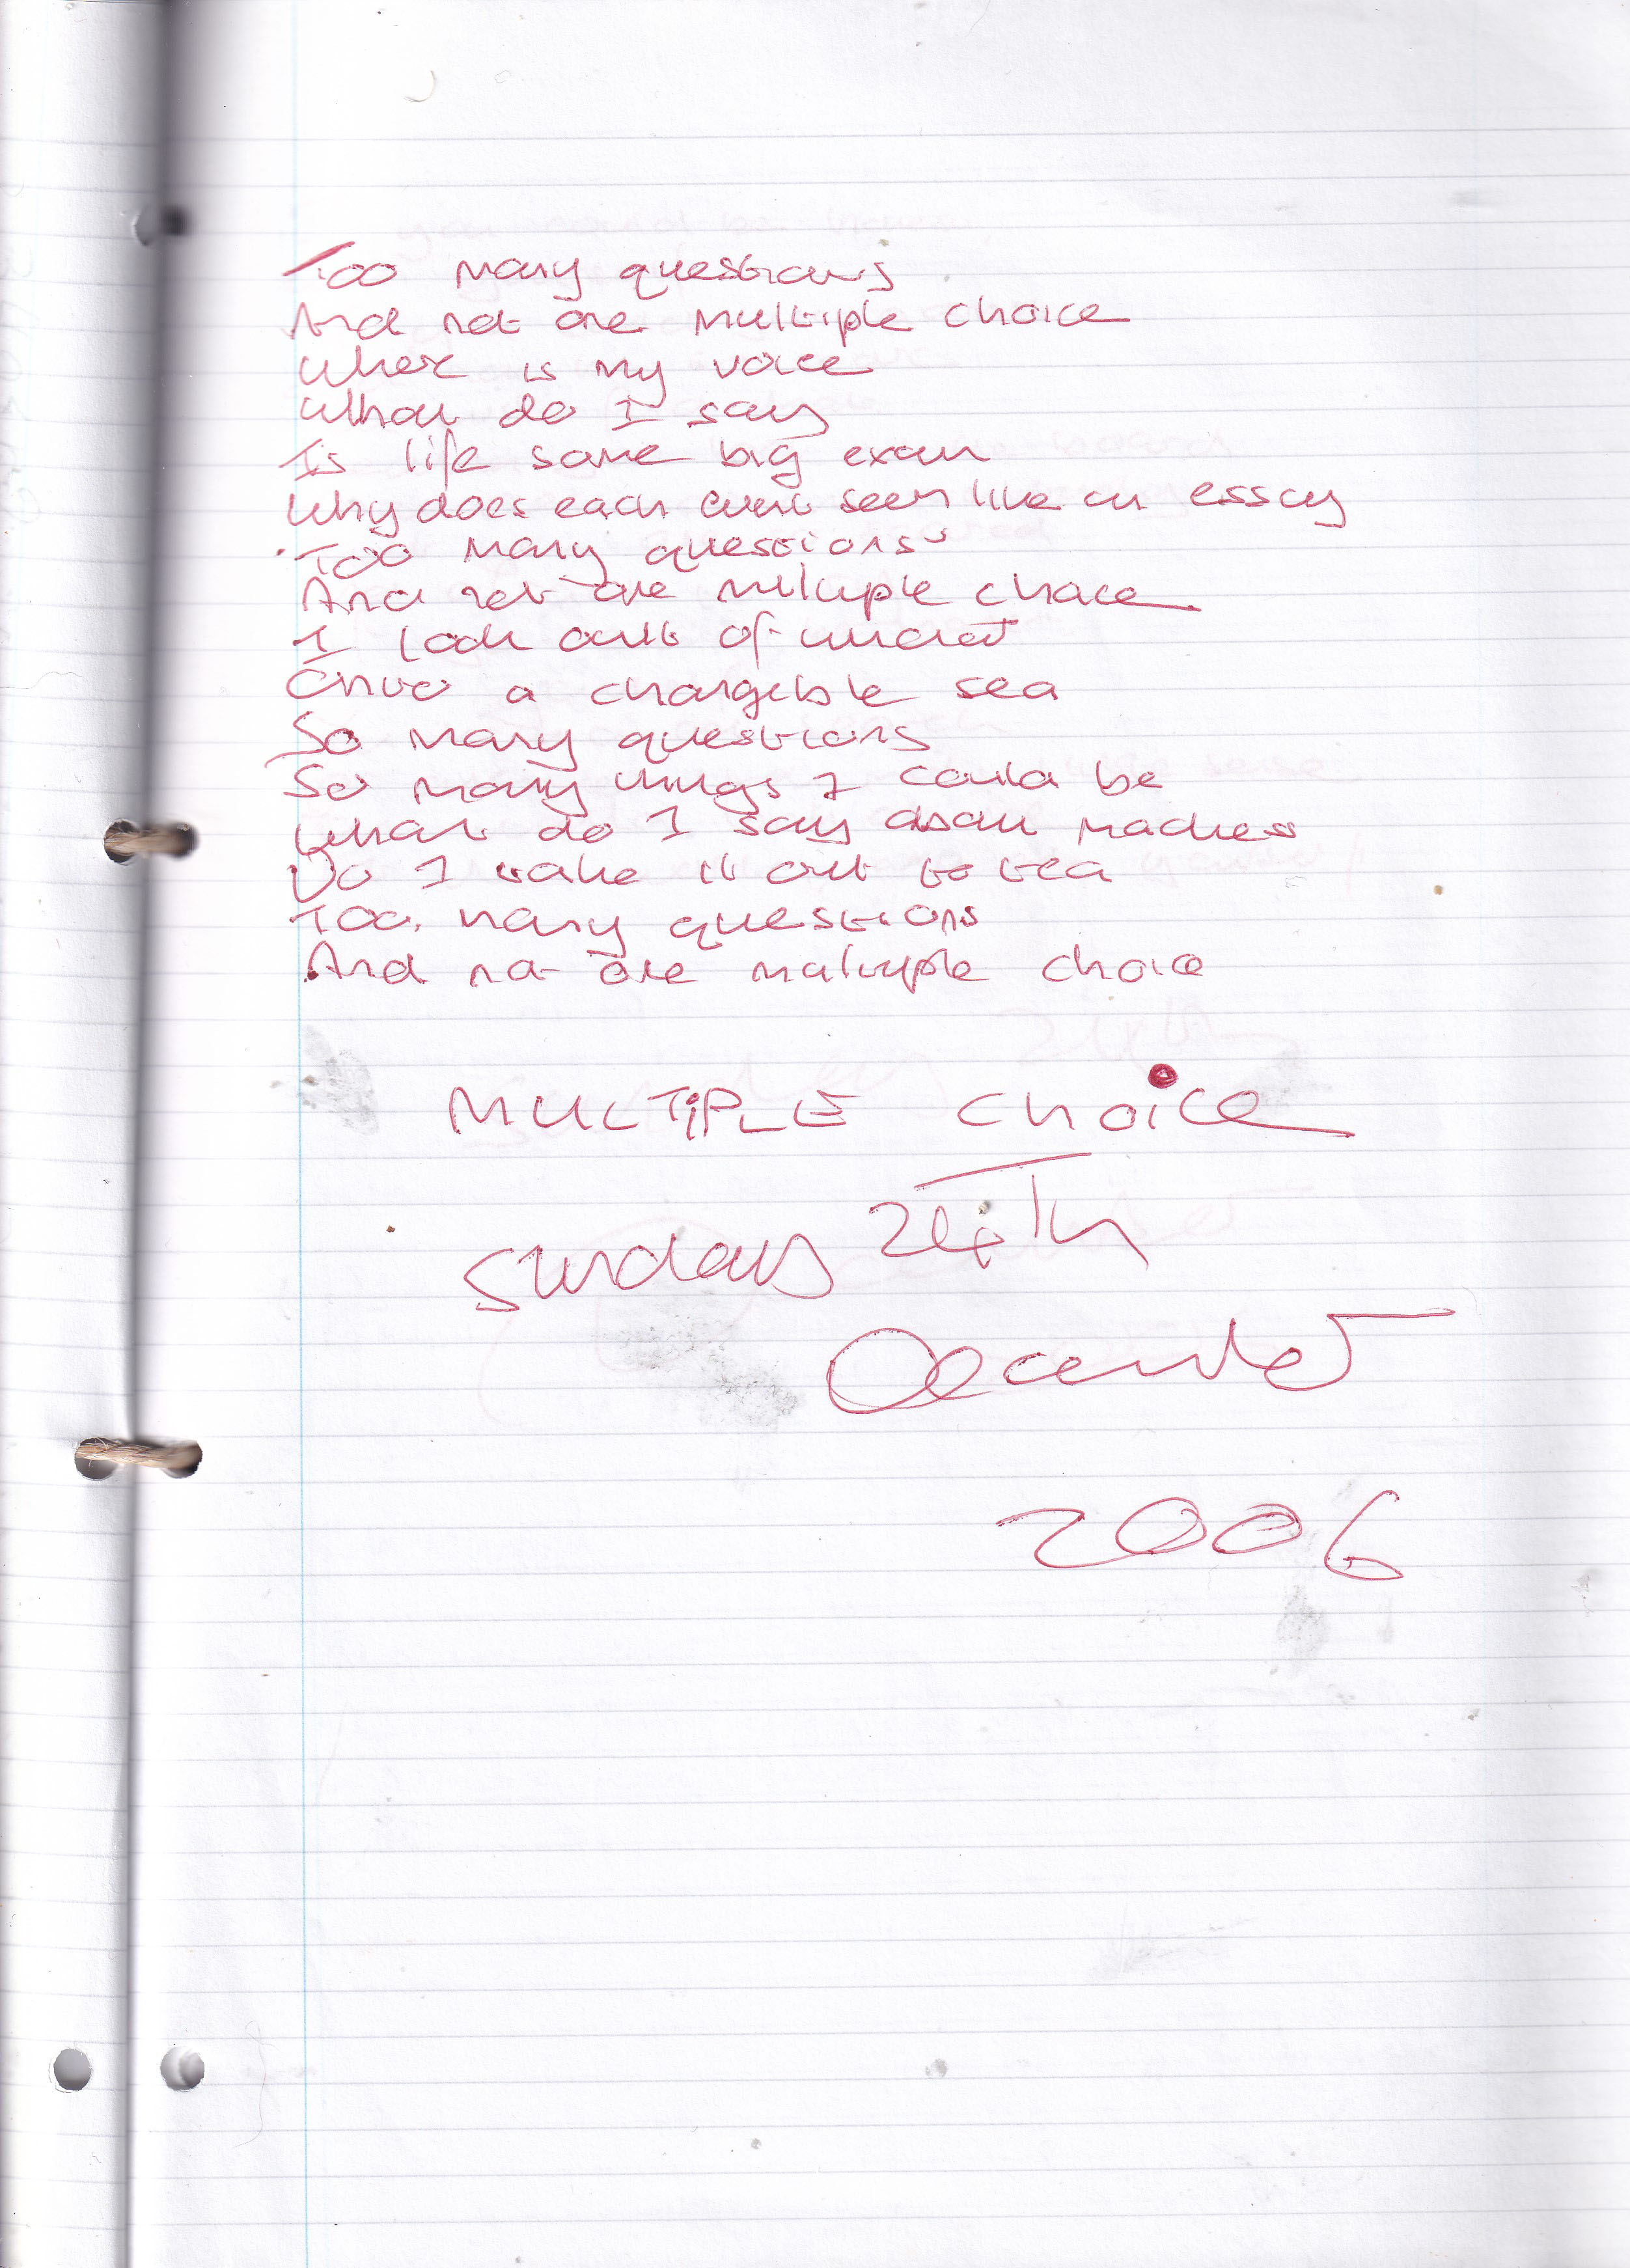 Too many questions
And not one multiple choice
Where is my voice
What do I say
Is life some big exam
Why does each event seem like an essay
Too many questions
And not one multiple choice
I look out of
Onto a changeble sea
So many questions
So many things I could be
What do I say about madness
Do I take it out to tea
Too many questions
And not one multiple choice
MULTIPLE choice
Sunday 24Th
December
2006